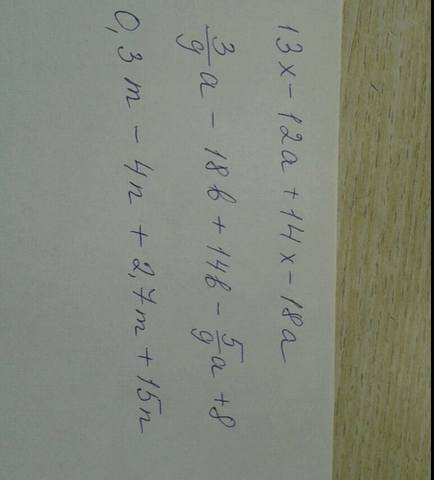 13x - 12a + 14x - 18a
3/9 a - 18b + 14b - 5/9 a + 8
0,3m - 4n + 2,7m + 15n